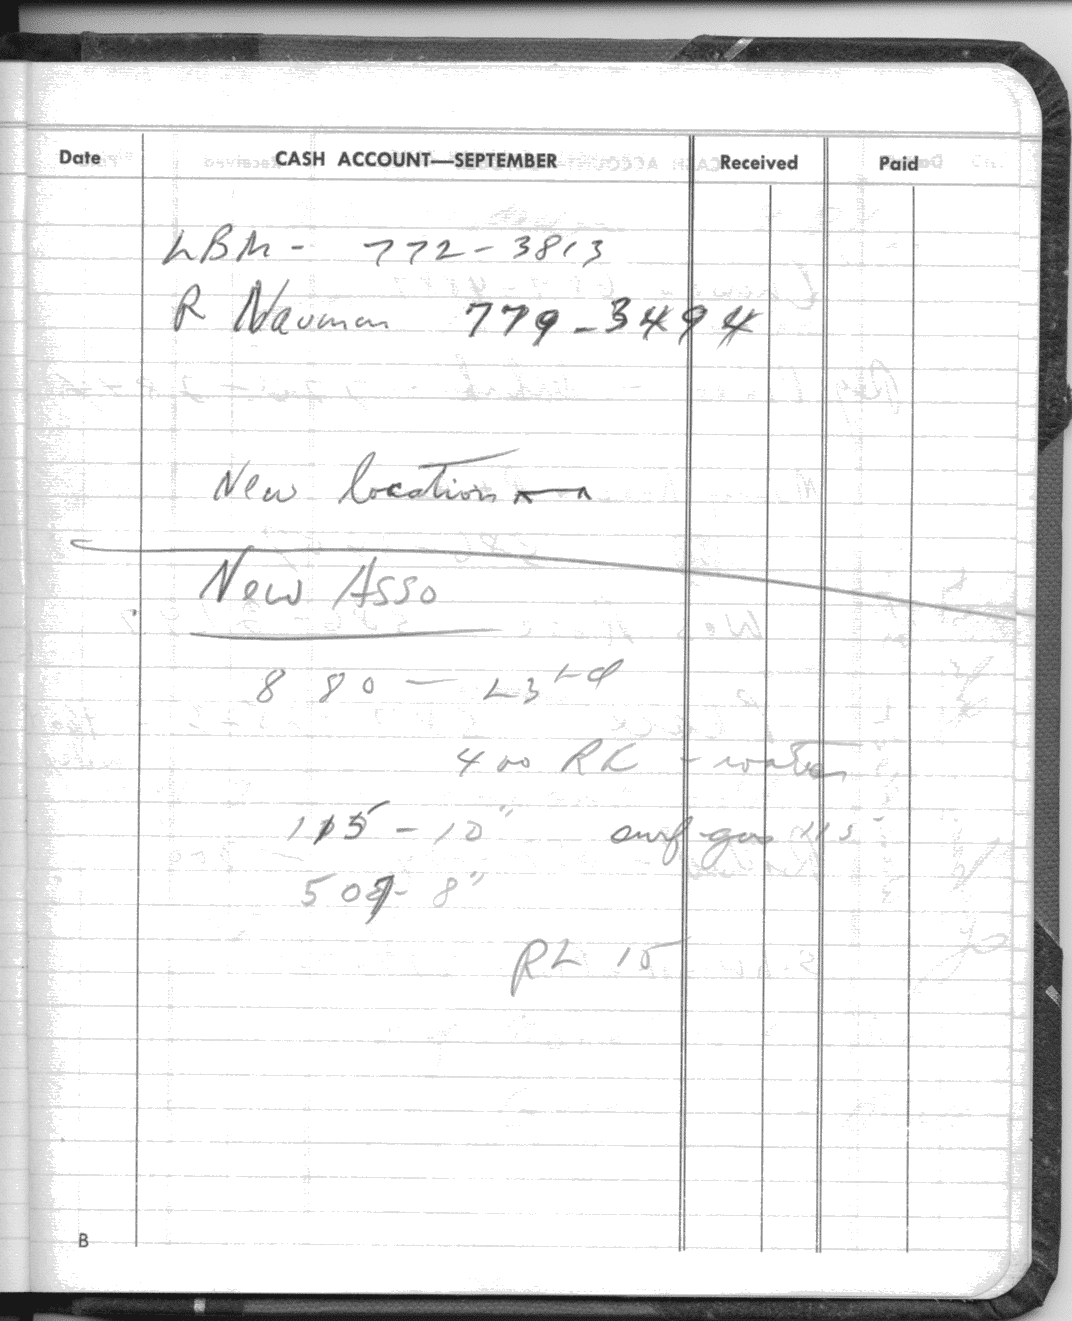 Date CASH ACCOUNT—SEPTEMBER Received Paid
LBM - 772-3813
R Nauman 779-3494
New location
New Asso
880 — 23rd
400 RL - water
115 - 10" surf gas 115
507 - 8"
RL 15
B